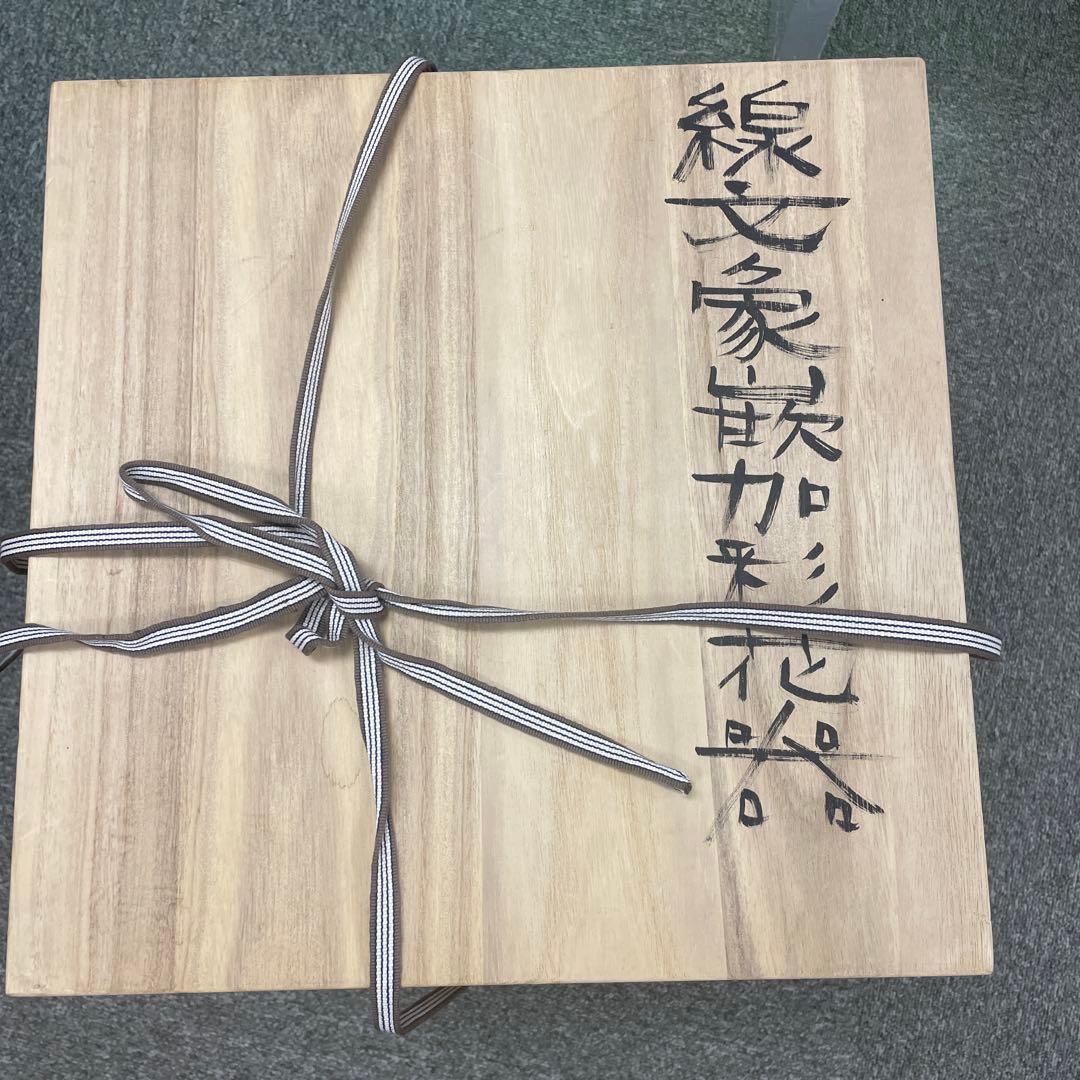 線文象嵌加彩花器